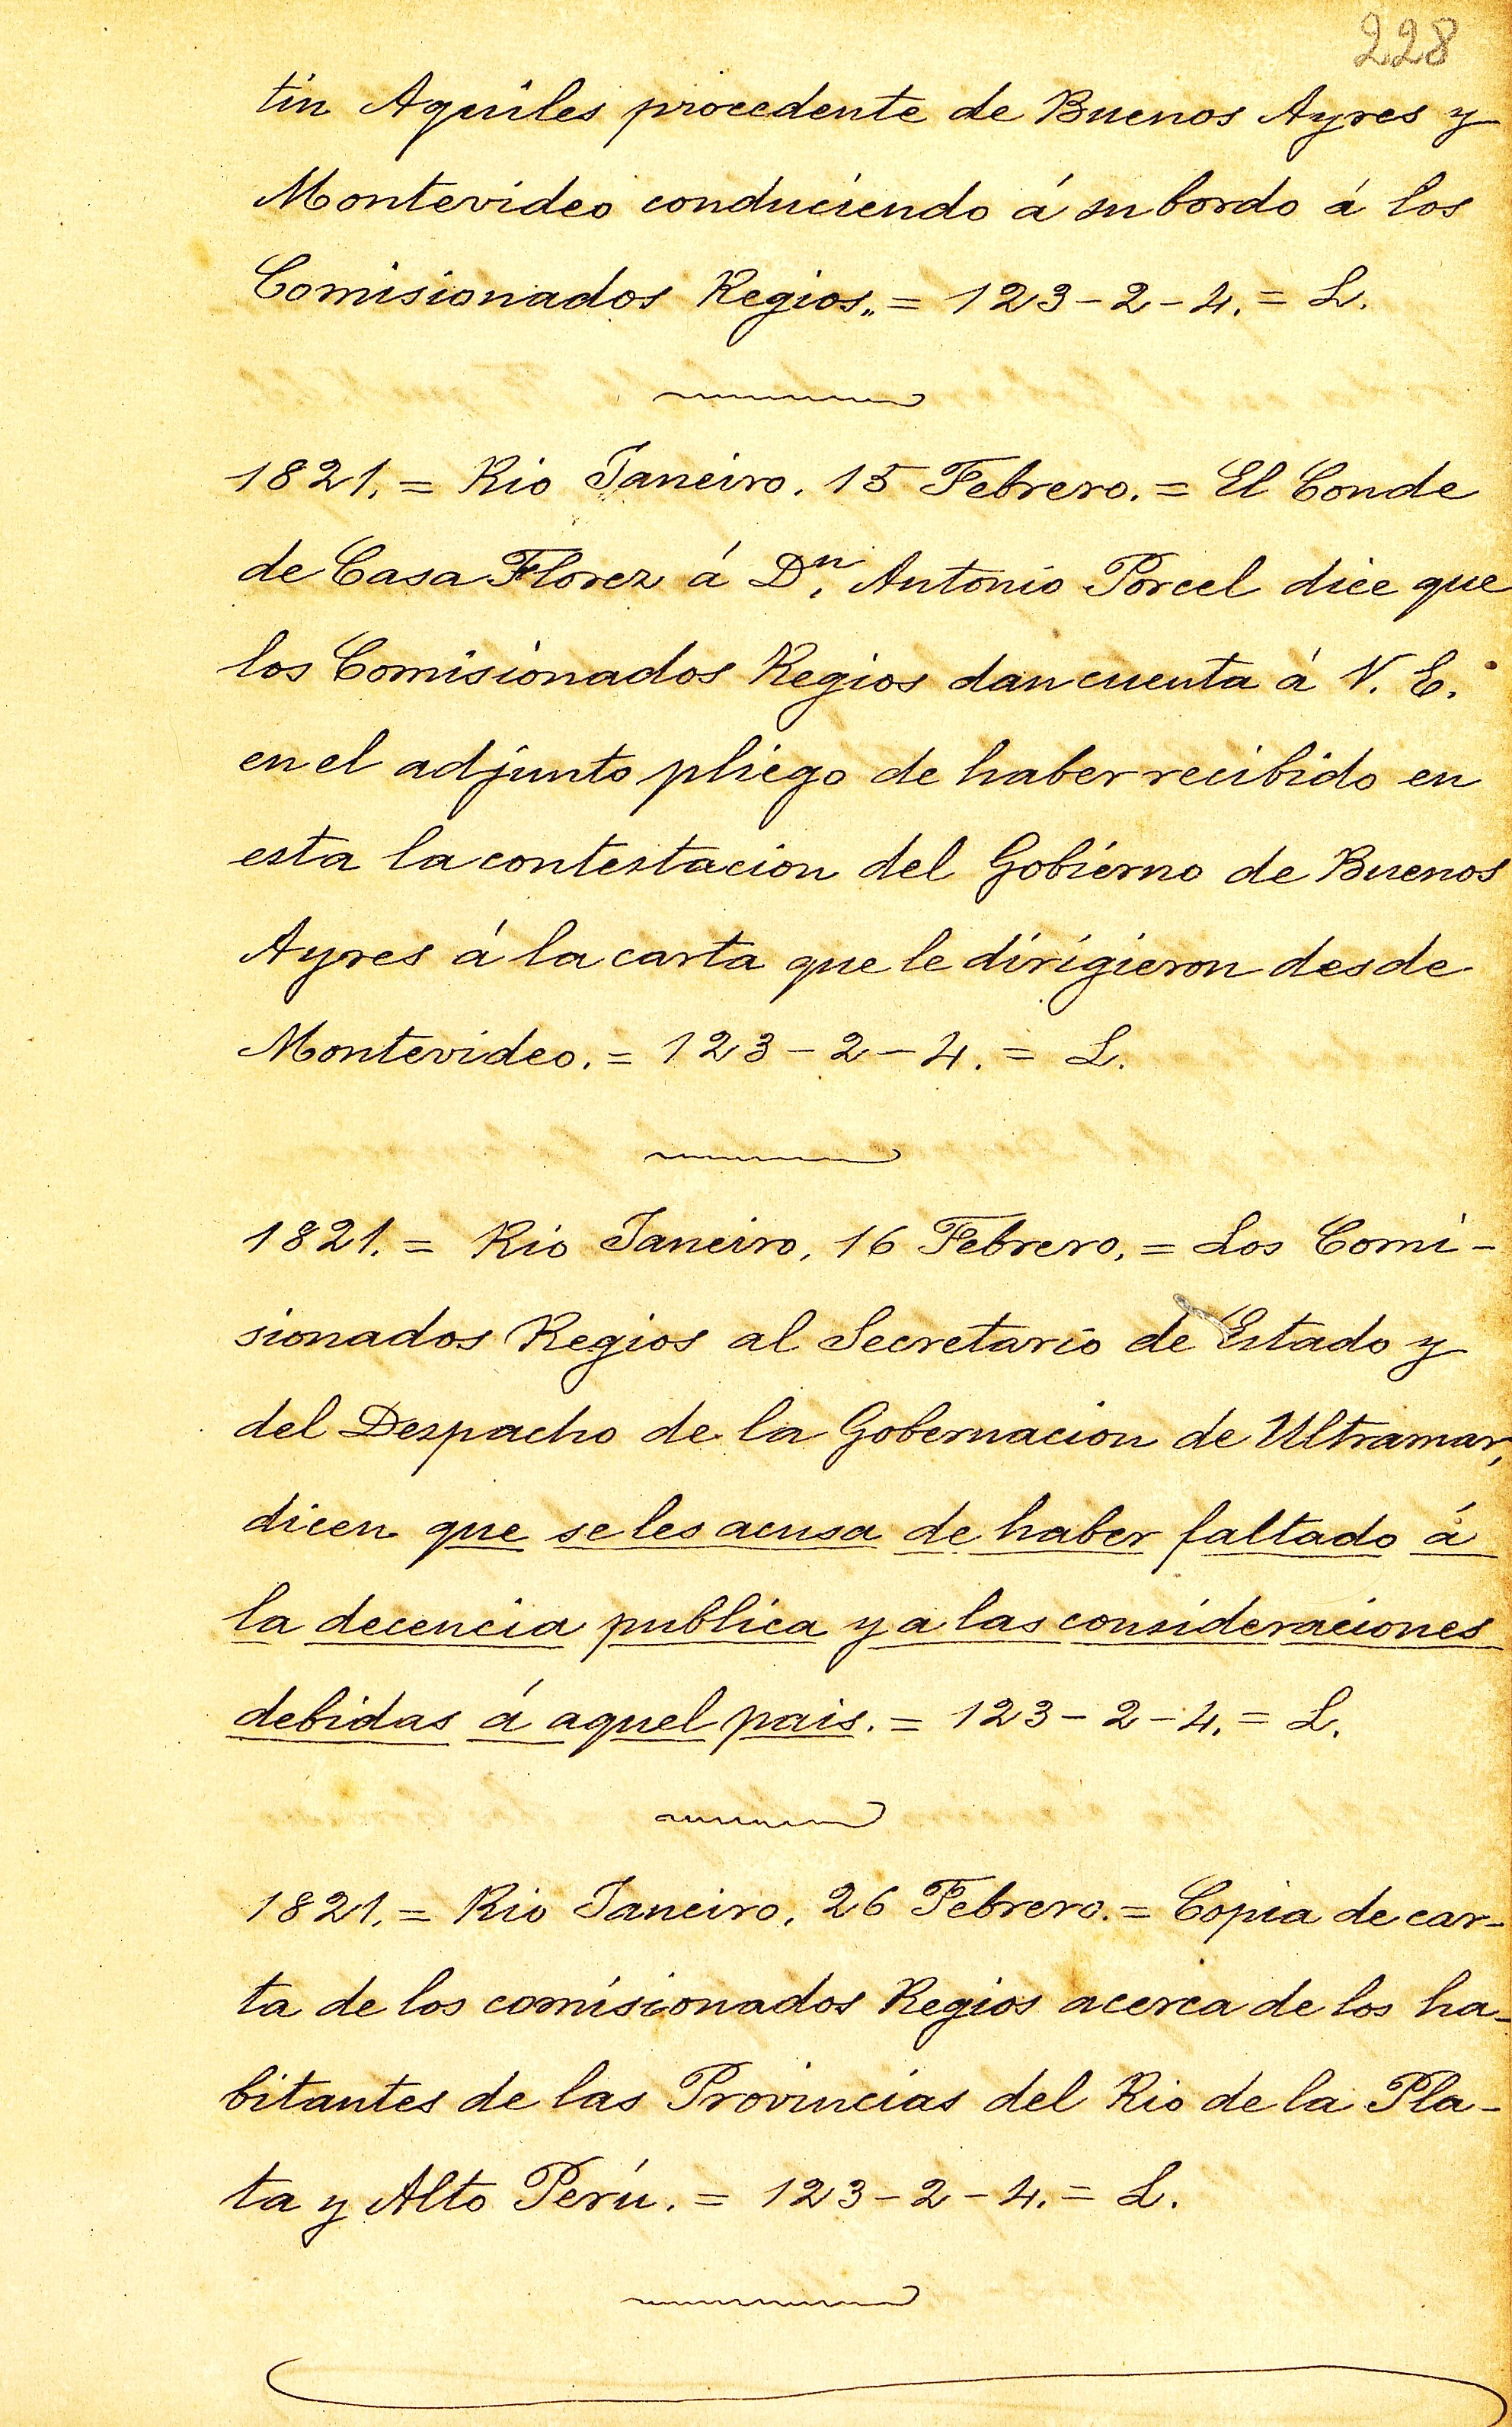 228
tin Aquiles procedente de Buenos Ayres y
Montevideo conduciendo á su bordo á los
Comisionados Regios,, = 123-2-4. = L.
1821. = Rio Janeiro. 15 Febrero. = El Conde
de Casa Florez á Dn. Antonio Porcel dice que
los Comisionados Regios dan cuenta á V. E.
en el adjunto pliego de haber recibido en
esta la contestacion del Gobierno de Buenos
Ayres á la carta que le dirigieron desde
Montevideo. = 123-2-4. = L.
1821. = Rio Janeiro, 16 Febrero. = Los Comi-
sionados Regios al Secretario de Estado y
del Despacho de la Gobernacion de Ultramar,
dicen que se les acusa de haber faltado á
la decencia publica y a las consideraciones
debidas á aquel pais. = 123-2-4. = L.
1821. = Rio Janeiro, 26 Febrero. = Copia de car-
ta de los comisionados Regios acerca de los ha-
bitantes de las Provincias del Rio de la Pla-
ta y Alto Perú. = 123-2-4. = L.